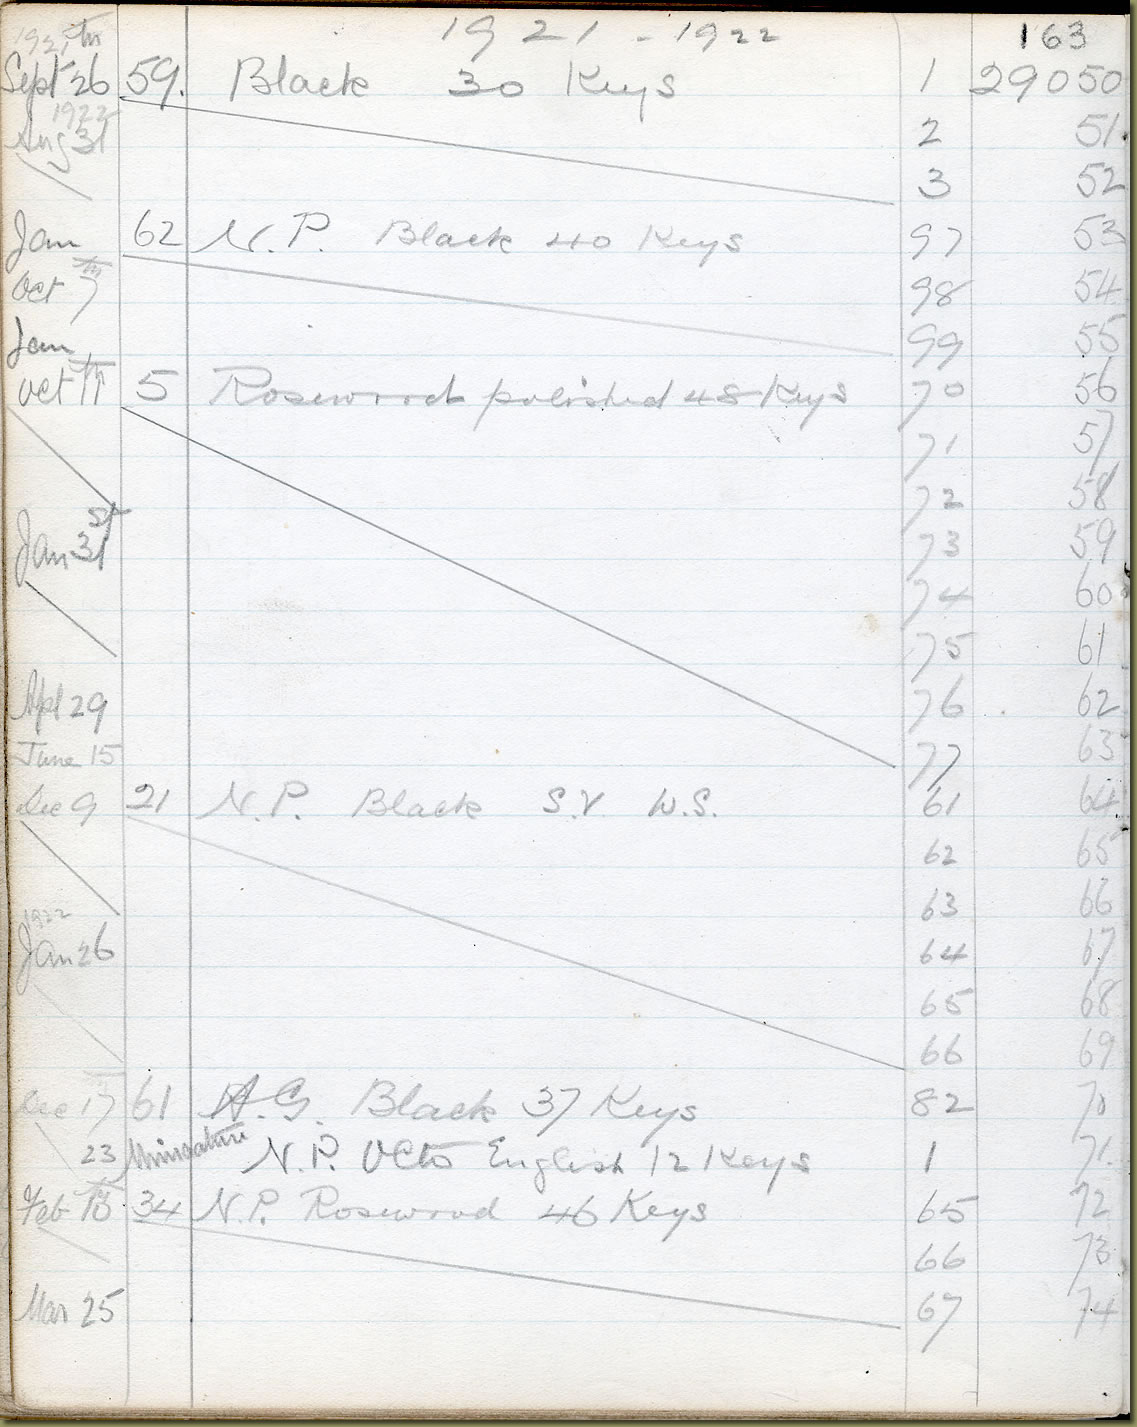 1921 - 1922 163
1921 th
Sept 26 59. Black 30 Keys 1 29050
1922
Aug 31 2 51
3 52
Jan 62 N.P. Black 40 Keys 97 53
Oct 7th 98 54
Jan 99 55
Oct 11th 5 Rosewood polished 48 Keys 70 56
71 57
72 58
Jan 31st 73 59
74 60
75 61
Apl 29 76 62
June 15 77 63
Dec 9 21 N.P. Black S.V. W.S. 61 64
62 65
63 66
1922
Jan 26 64 67
65 68
66 69
Dec 17 61 A.G. Black 37 Keys 82 70
23 Miniature N.P. Octo English 12 Keys 1 71.
Feb th 34 N.P. Rosewood 46 Keys 65 72
66 73
Mar 25 67 74